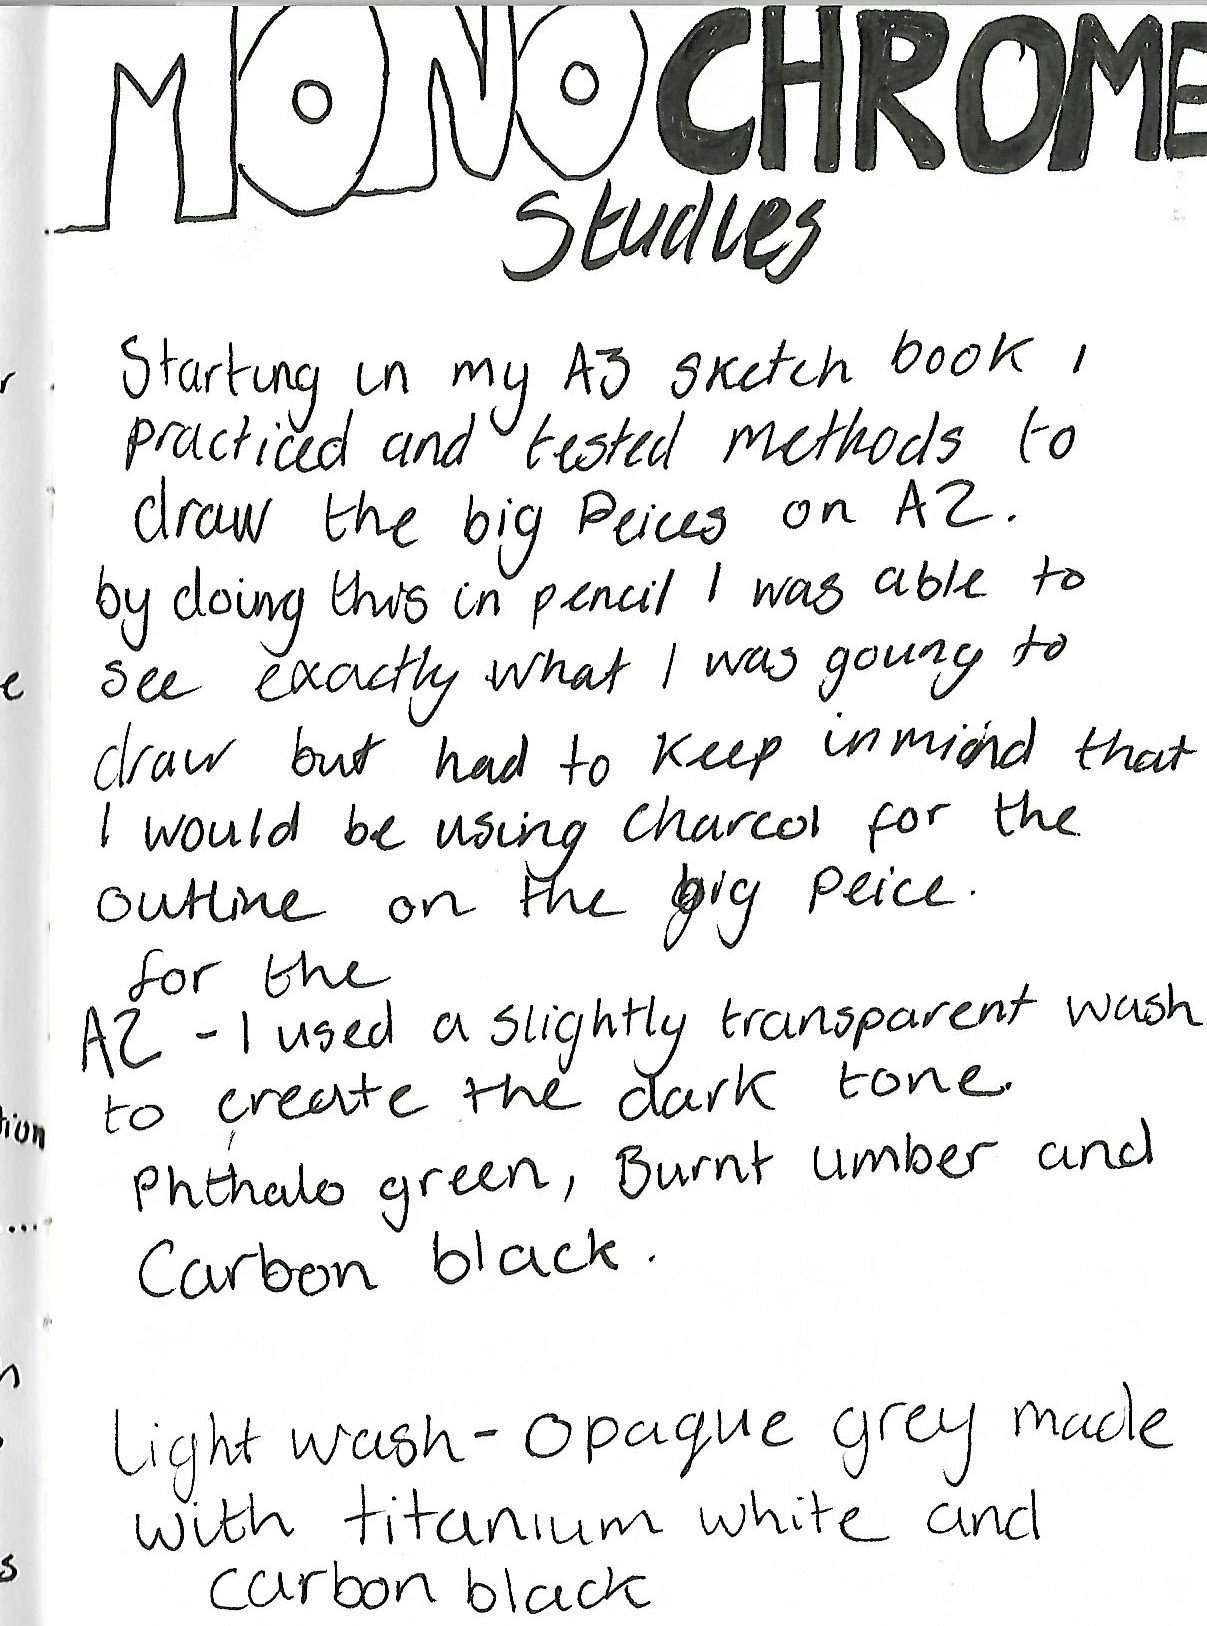 MONOCHROME
Studies
Starting in my A3 sketch book I
practiced and tested methods to
draw the big Peices on A2.
by doing this in pencil I was able to
see exactly what I was going to
draw but had to keep in mind that
I would be using Charcol for the
outline on the big peice.
for the
A2 - I used a slightly transparent wash
to create the dark tone.
Phthalo green, Burnt umber and
Carbon black.
light wash - Opaque grey made
with titanium white and
carbon black